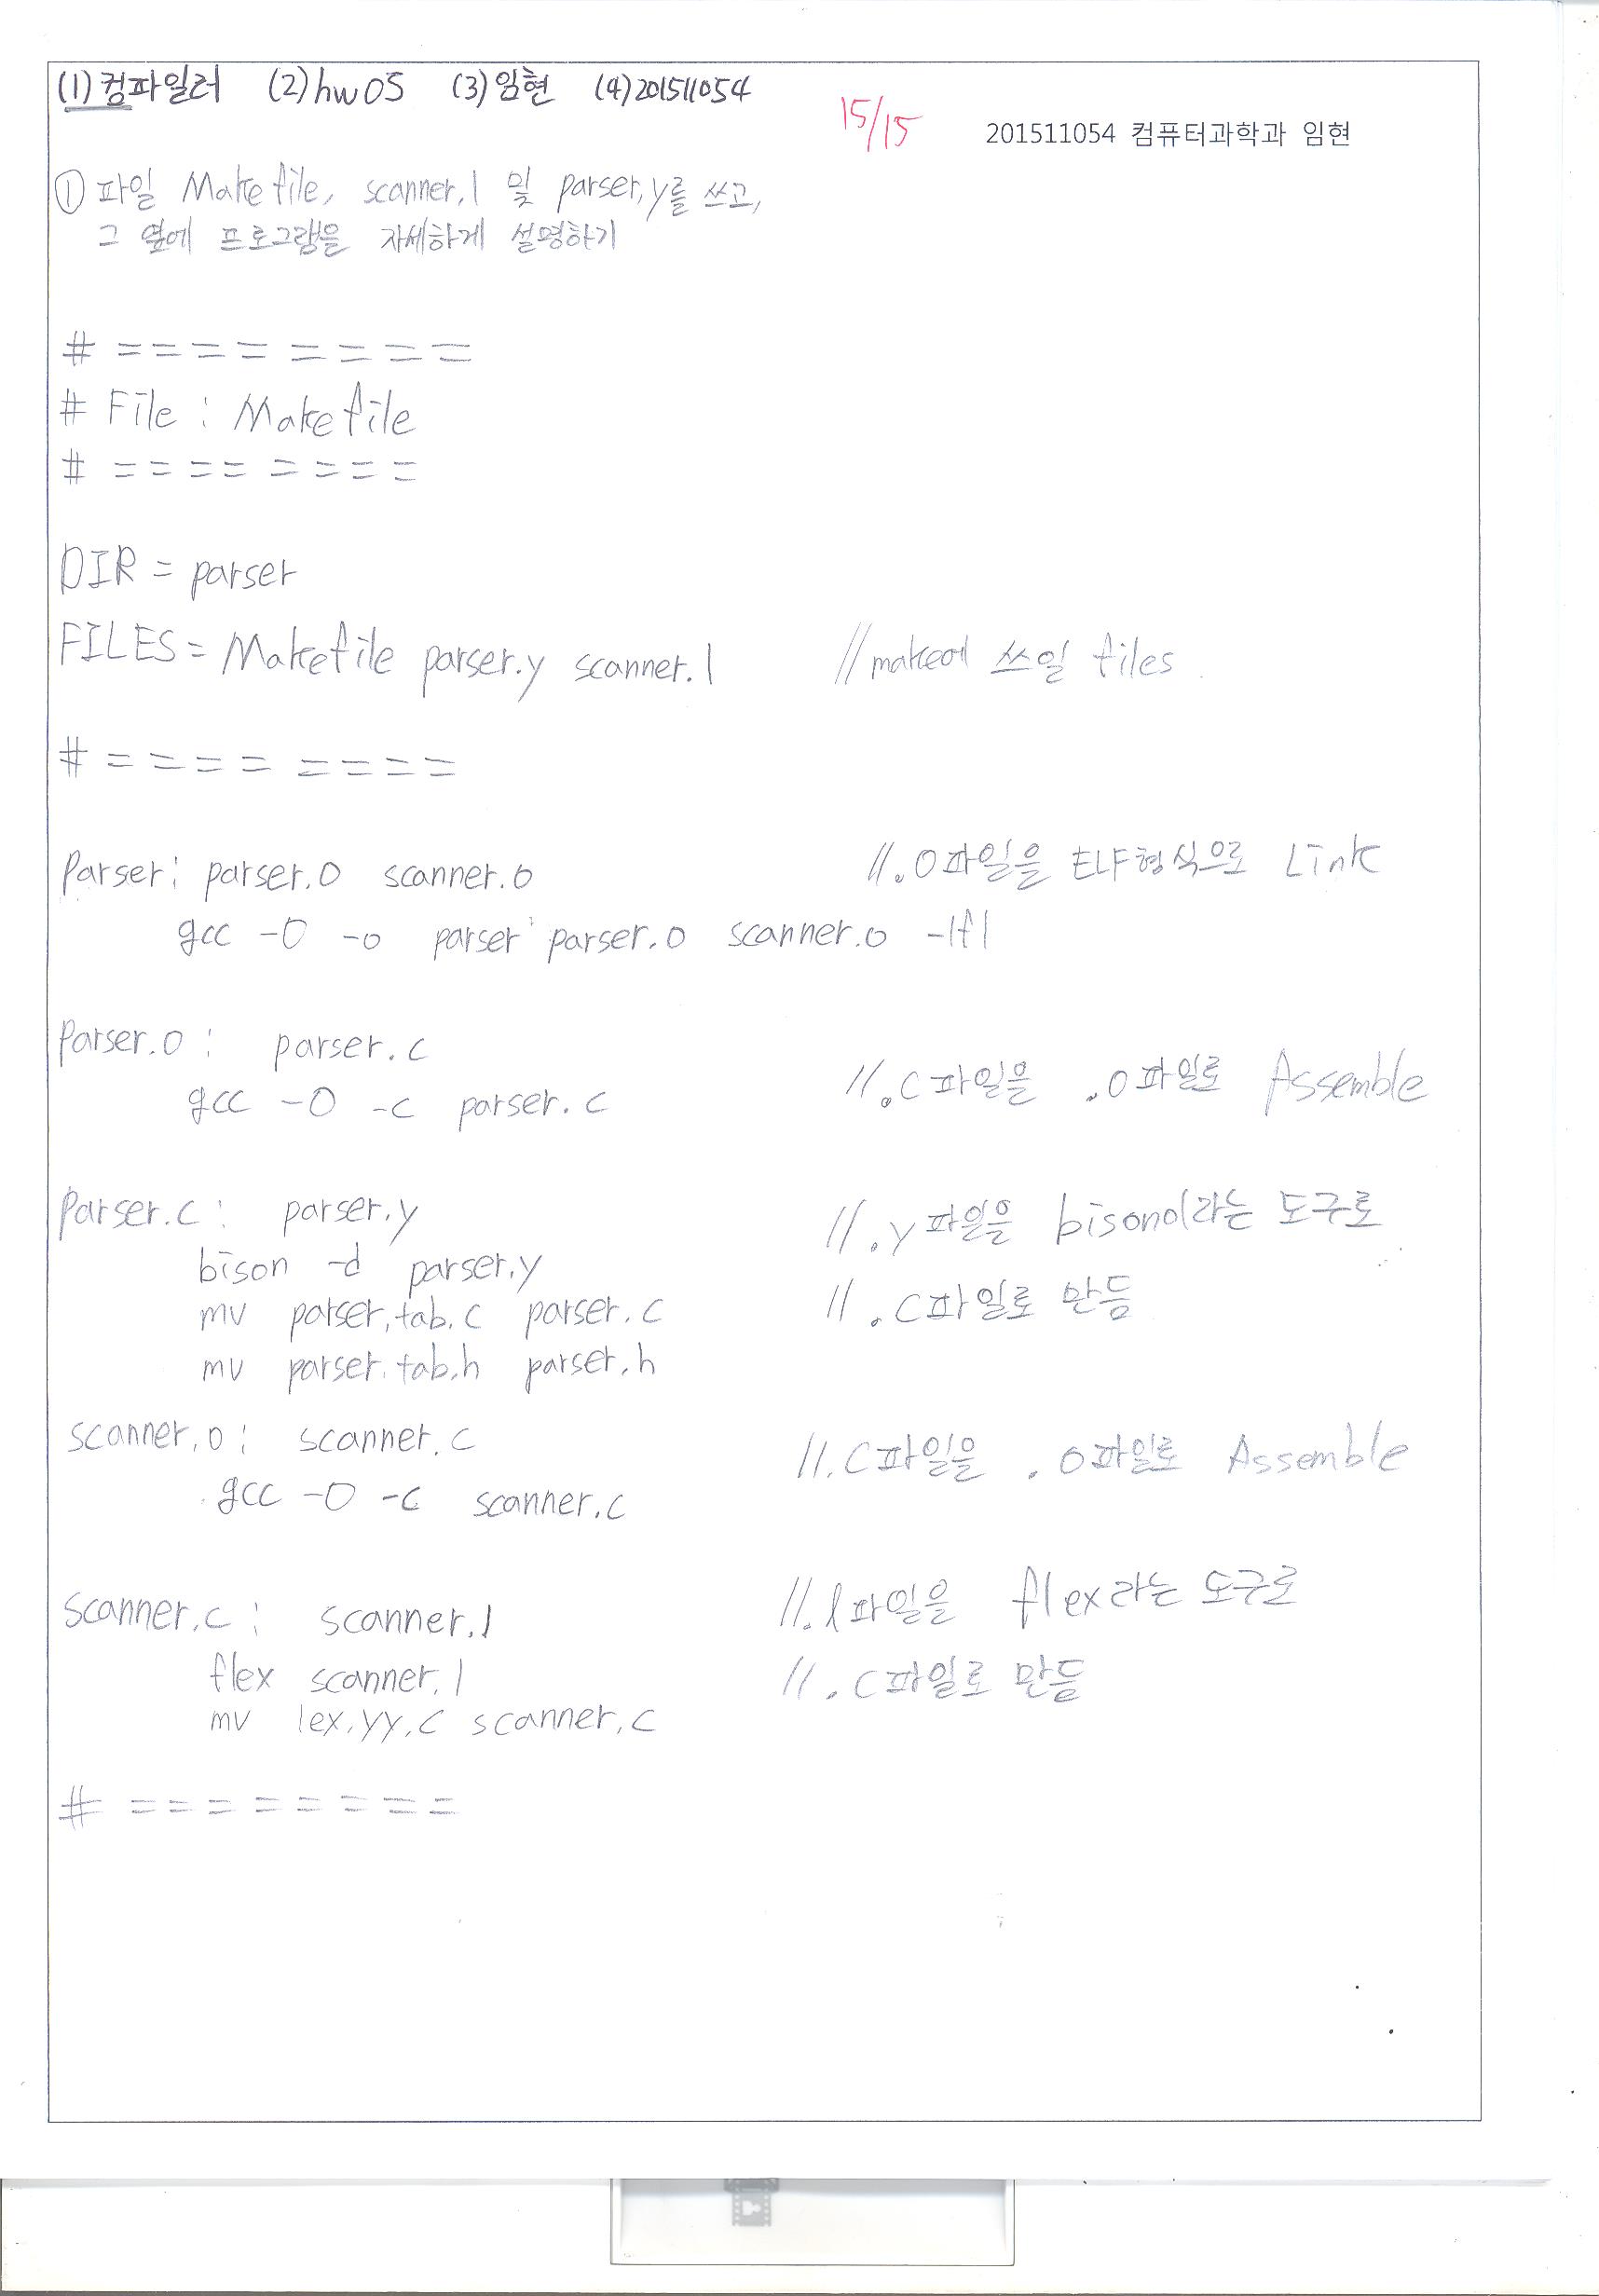 (1)컴파일러 (2)hw05 (3)임현 (4)201511054
15/15
201511054 컴퓨터과학과 임현
① 파일 Makefile, scanner.l 및 parser.y를 쓰고,
그 옆에 프로그램을 자세하게 설명하기
# = = = = = = = =
# File : Makefile
# = = = = = = = =
DIR = parser
FILES = Makefile parser.y scanner.l //make에 쓰일 files
# = = = = = = = =
Parser: parser.o scanner.o //.o파일을 ELF형식으로 Link
gcc -O -o parser parser.o scanner.o -lfl
Parser.o : parser.c
gcc -O -c parser.c //.c파일을 .o파일로 Assemble
Parser.c : parser.y //.y파일을 bison이라는 도구로
bison -d parser.y
mv parser.tab.c parser.c //.c파일로 만듬
mv parser.tab.h parser.h
scanner.o : scanner.c //.c파일을 .o파일로 Assemble
gcc -O -c scanner.c
scanner.c : scanner.l //.l파일을 flex라는 도구로
flex scanner.l //.c파일로 만듦
mv lex.yy.c scanner.c
# = = = = = = = =